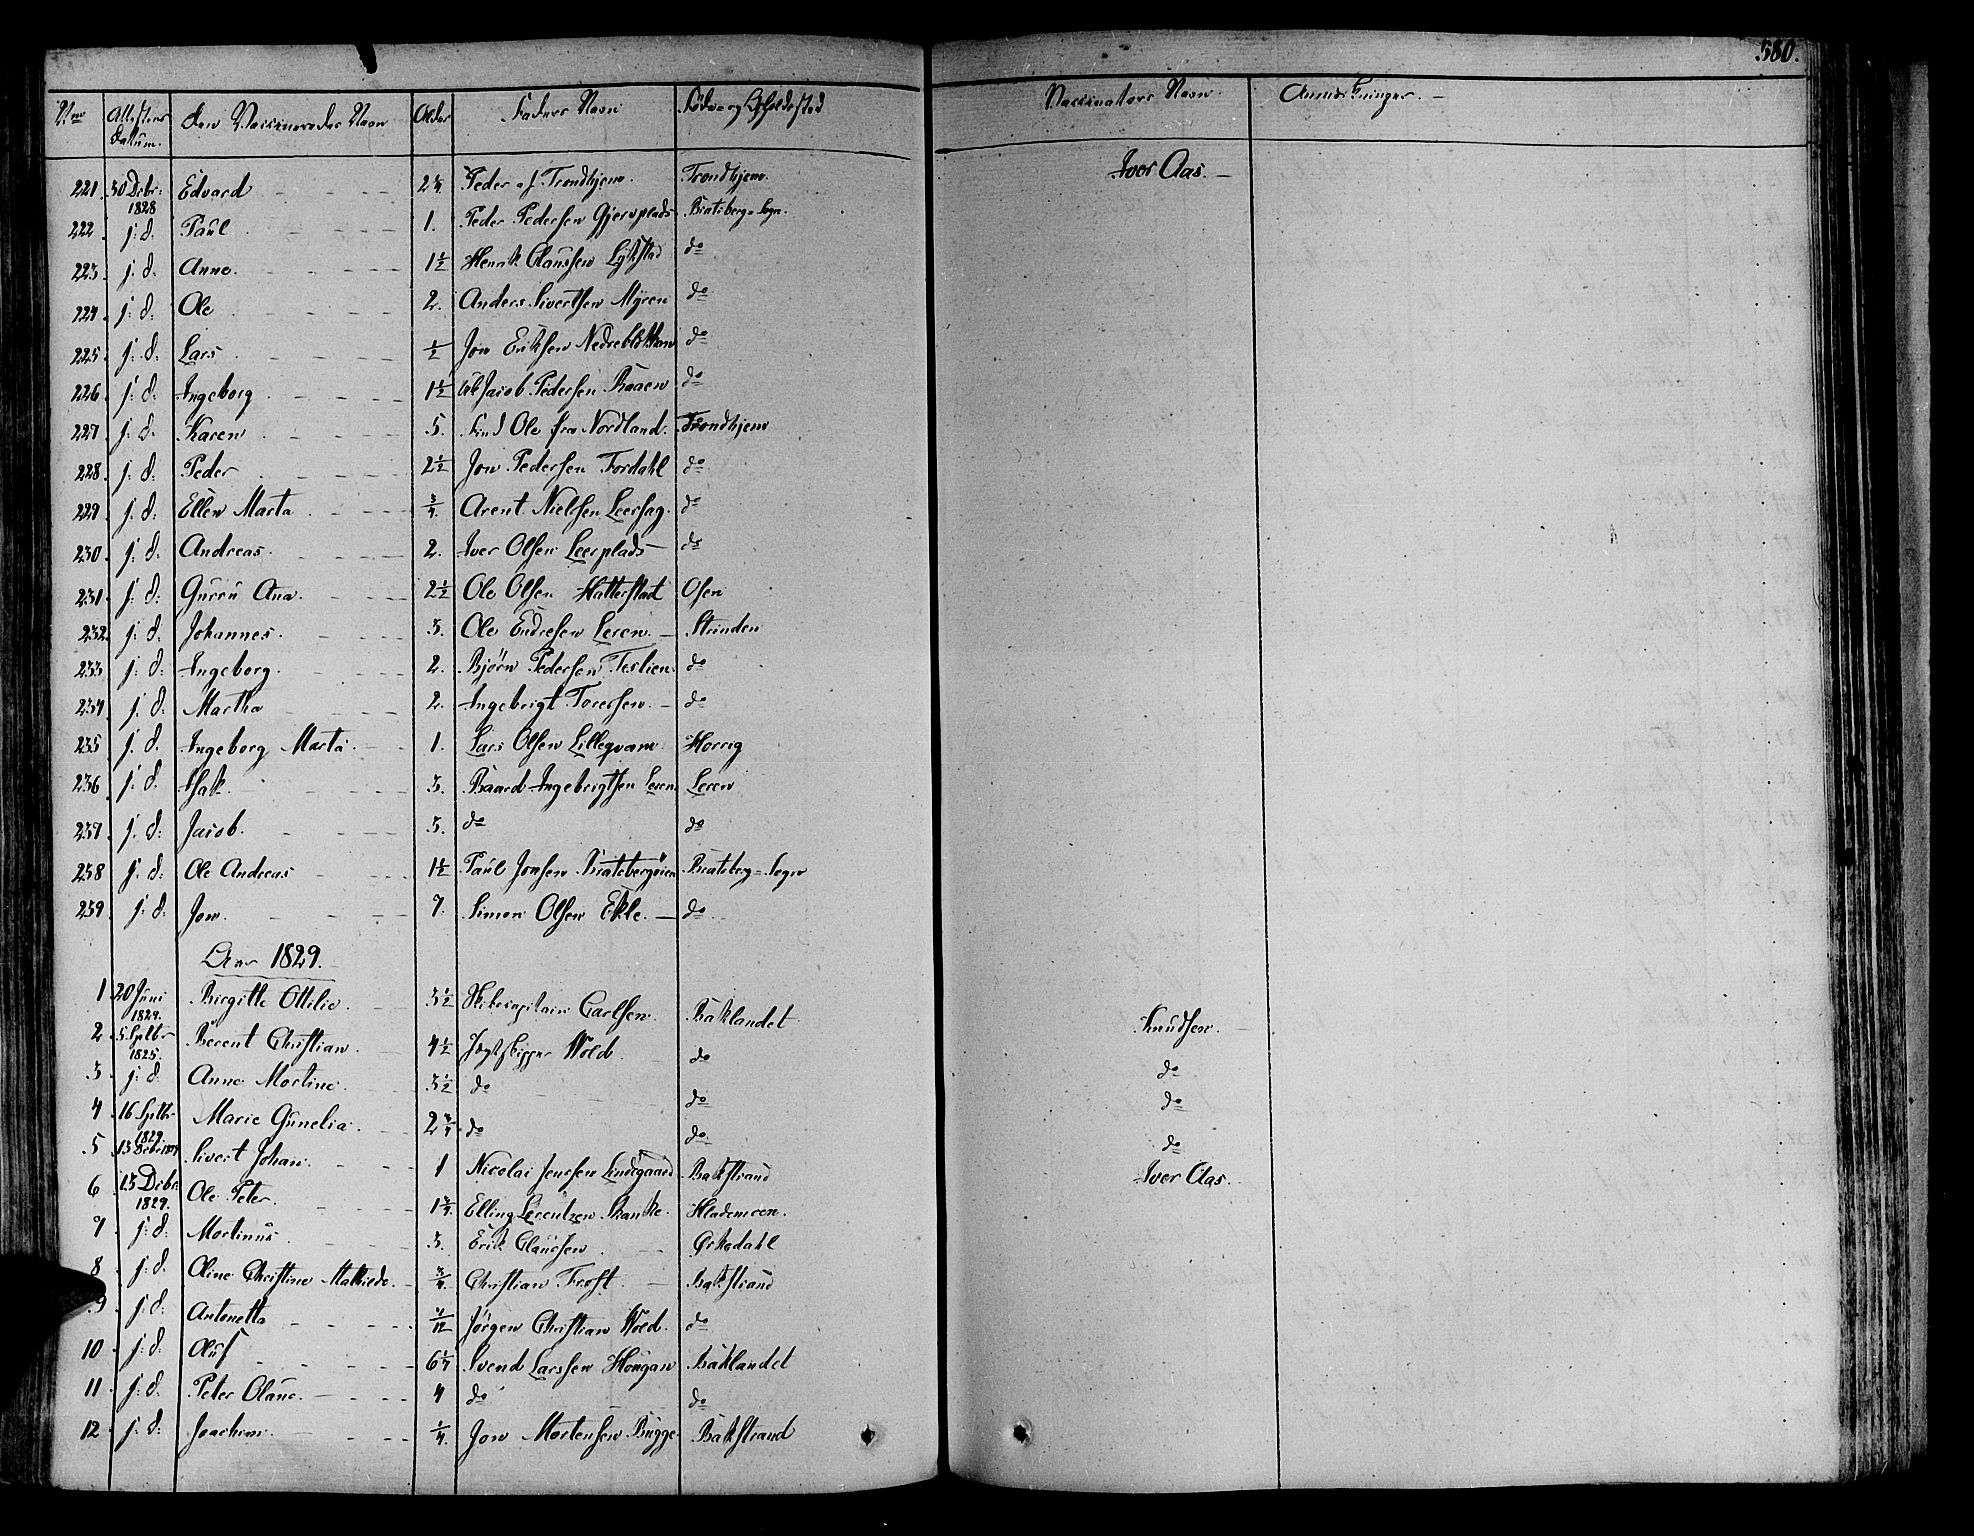 580.
Nmr Attestens Datum. den Vaccineredes Navn Alder Faders Navn Føde- og Opholdssted Vaccinators Navn. Anmærkninger.
221. 30 Debr: 1828 Edvard 2 3/4 Peder af Trondhjem. Trondhjem. Iver Aas.
222. j: d: Paul 1. Peder Pedersen Gjervplads Bratsberg-Sogn.
223. j: d: Anne. 1 1/2 Henrik Claussen Lykstad do
224. j: d: Ole 2. Anders Sivertsen Myren do
225. j: d: Lars 1/2 Jon Eriksen do
226. j: d: Ingeborg 1 1/2 Jacob Pedersen Raaen do
227. j: d: Karen 5. Ole fra Nordland. Trondhjem
228. j: d: Peder 2 1/2 Jon Pedersen Fordahl do
229. j: d: Ellen Marta 3/4 Arent Nielsen Leersag. do
230. j: d: Andreas. 2. Iver Olsen Leerplads do
231. j: d: Guru Ana. 2 1/2 Ole Olsen Hatterstad Osen
232. j: d: Johannes. 3. Ole Endresen Leren. Strinden
233 j: d: Ingeborg. 2. Bjørn Pedersen Teslien. do
234. j: d: Martha 2. Ingebrigt Toresen. do
235 j: d. Ingeborg Marta. 1. Lars Olsen Lillegvam. Horrig
236 j: d. Isak 3. Baard Ingebrigtsen Leren. Leren
237. j. d: Jacob. 3. do do
238 j: d: Ole Andreas 1 1/2 Paul Jonsen Bratsbergøien Bratsberg-Sogn
239. j: d. Jon. 7. Simon Olsen Ekle. do
Aar 1829.
1 20 Juni 1829. Birgitte Ottilie 3 1/2 Carlsen. Baklandet Knudsen.
2 5 Septbr 1825. Berent Christian 4 1/2 Jægtskipper Wold do do
3 j: d. Anne Martine. 3 1/2 do do do
4 16 Septbr 1829. Marie Gunelia. 2 3/4 do do do
5 13 Debr 1829 Sivert Johan. 1 Nicolai Jenssen Lindgaard Bakstrand Iver Aas.
6 15 Debr. 1829. Ole Peter. 1 3/4. Elling Lorentzen Skanke. Hlademoen.
7 j: d: Martinus 3. Erik Claussen Ørkedahl
8 j: d. Oline Christine Mathilde. 3/4. Christian Frost. Bakstrand
9 j: d. Antonetta 7/12 Jørgen Christian Wold. do
10 j: d. Oluf 6 1/4 Svend Larssen Hougan Baklandet
11 j: d. Peter Olaus. 4 do do
12 j: d: Joachim. 1/4. Jon Mortensen Bugge Bakstrand